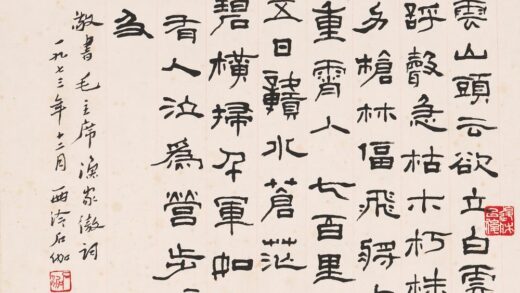 雲山頭云欲立白雲
𧦝聲急枯木朽株
力槍林偪飛將
重霄入七百里
五日贛水蒼茫
碧橫掃千軍如
有人泣爲營步
及
敬書毛主席漁家傲詞
一九七三年十二月西泠石伽